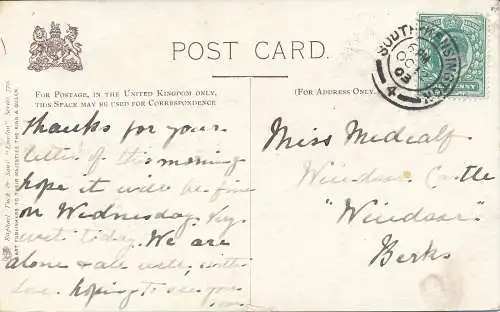 POST CARD.
FOR POSTAGE, IN THE UNITED KINGDOM ONLY,
THIS SPACE MAY BE USED FOR CORRESPONDENCE
(FOR ADDRESS ONLY.
SOUTH KENSINGTON
6 PM
OC
03
4
Raphael Tuck & Sons' "London" Series
ART PUBLISHERS TO THEIR MAJESTIES THE KING & QUEEN.
Thanks for your
letter of this morning
hope it will be fine
on Wednesday. Very
wet today. We are
alone & all well, with
love. hoping to see you
Miss Medcalf
Windsor Castle
"Windsor"
Berks